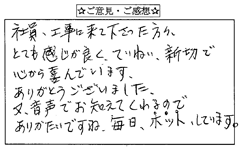 ☆ご意見・ご感想☆
社員、工事に来て下さった方々、
とても感じが良く、ていねい、新切で
心から喜んでいます。
ありがとうございました。
又、音声でお知えてくれるので
ありがたいですね。毎日、ホットしています。